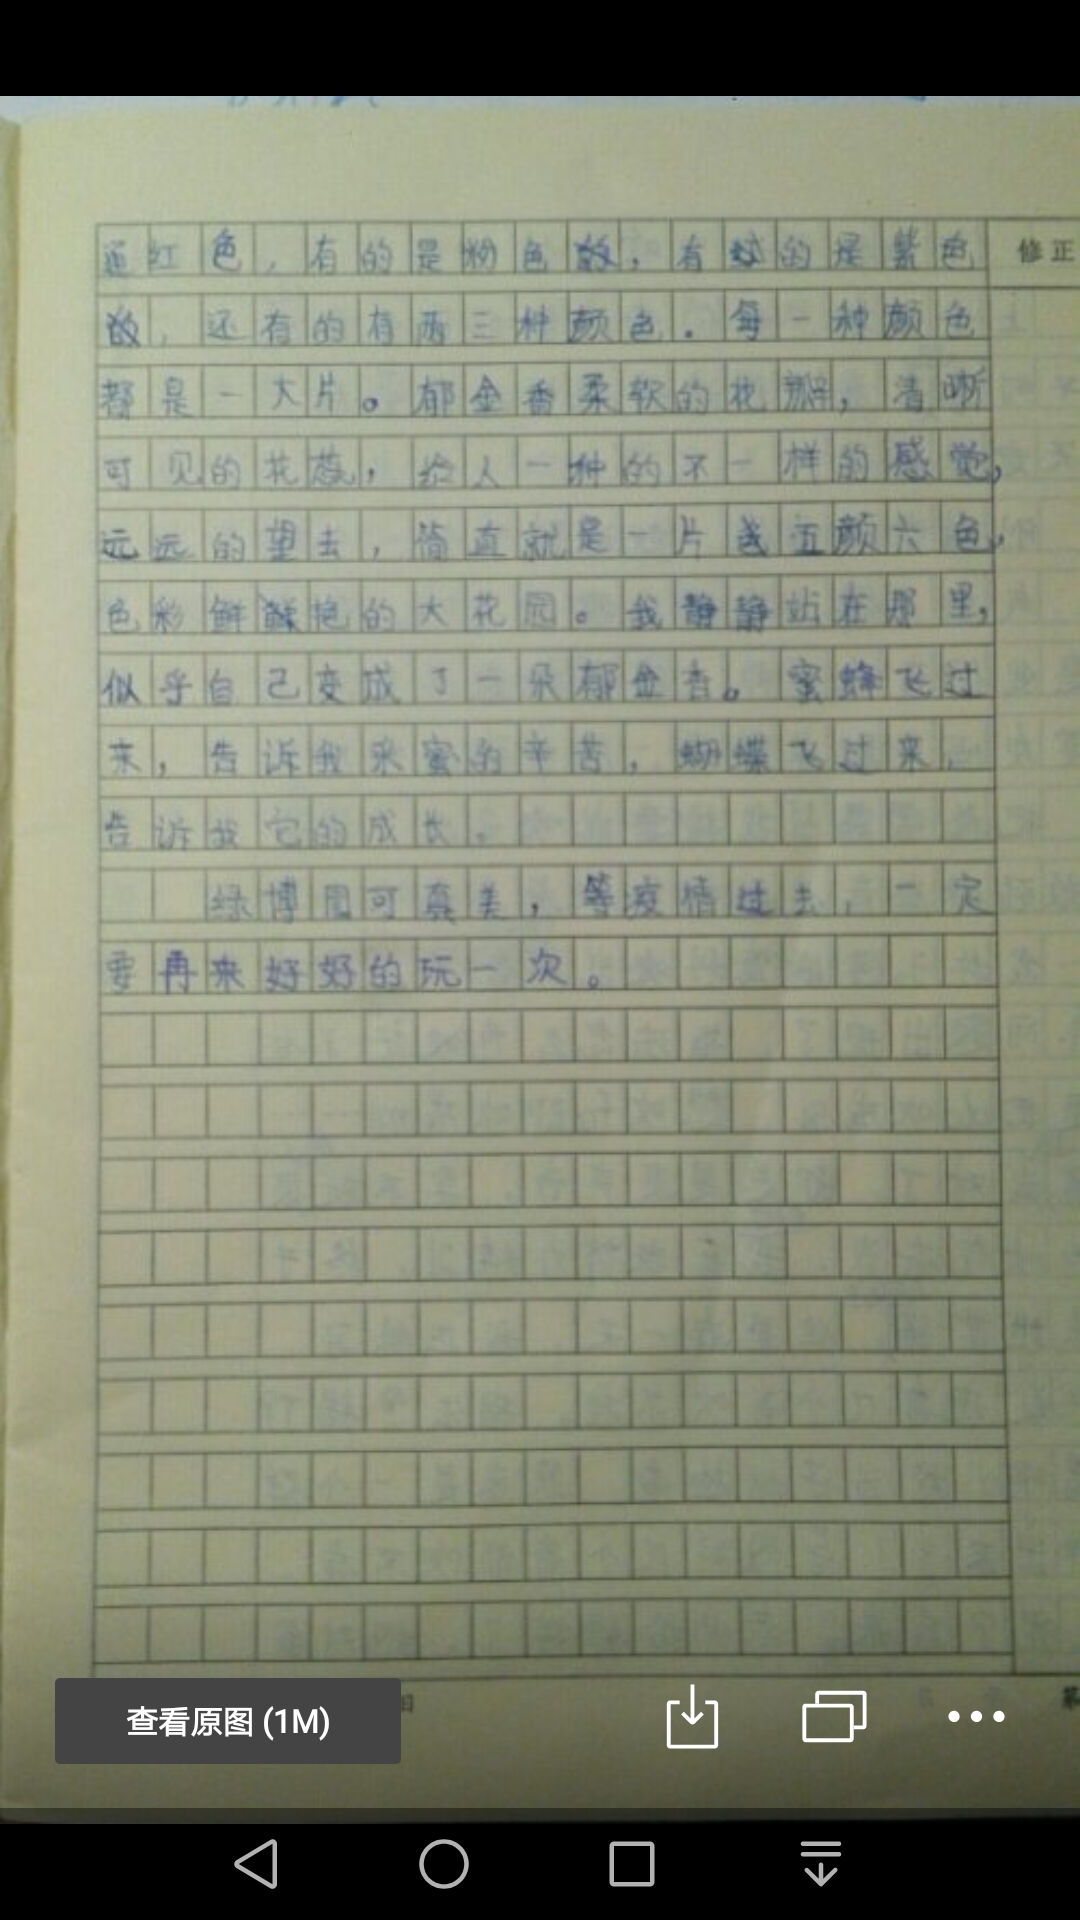 通红色，有的是粉色的，有的是紫色 修正
的，还有的有两三种颜色.每一种颜色
都是一大片。郁金香柔软的花瓣，清晰
可见的花蕊，给人一种的不一样的感觉，
远远的望去，简直就是一片五颜六色，
色彩鲜艳的大花园。我静静站在那里，
似乎自己变成了一朵郁金香。蜜蜂飞过
来，告诉我采蜜的辛苦，蝴蝶飞过来，
告诉我它的成长。
绿博园可真美，等疫情过去，一定
要再来好好的玩一次。
查看原图 (1M)